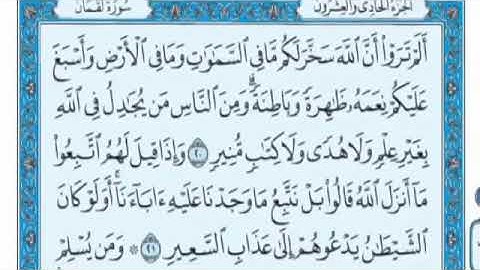 الجزء الحادي والعشرون سورة لقمان
أَلَمْ تَرَوْا۟ أَنَّ ٱللَّهَ سَخَّرَ لَكُم مَّا فِى ٱلسَّمَٰوَٰتِ وَمَا فِى ٱلْأَرْضِ وَأَسْبَغَ
عَلَيْكُمْ نِعَمَهُۥ ظَٰهِرَةً وَبَاطِنَةً ۗ وَمِنَ ٱلنَّاسِ مَن يُجَٰدِلُ فِى ٱللَّهِ
بِغَيْرِ عِلْمٍ وَلَا هُدًى وَلَا كِتَٰبٍ مُّنِيرٍ ٢٠ وَإِذَا قِيلَ لَهُمُ ٱتَّبِعُوا۟
مَآ أَنزَلَ ٱللَّهُ قَالُوا۟ بَلْ نَتَّبِعُ مَا وَجَدْنَا عَلَيْهِ ءَابَآءَنَآ ۚ أَوَلَوْ كَانَ
ٱلشَّيْطَٰنُ يَدْعُوهُمْ إِلَىٰ عَذَابِ ٱلسَّعِيرِ ٢١ ۞ وَمَن يُسْلِمْ